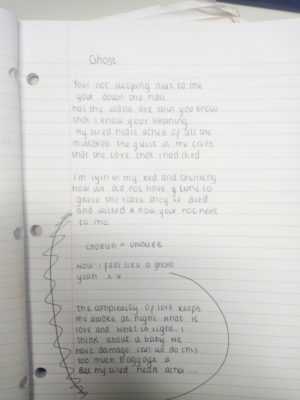 Ghost
Your not sleeping next to me
your down the hall
but the walls are thin you know
that I know your listening
My tired heart aches of all the
mistakes the guilt in me cries
that the love that I had died
I'm lyin in my bed and thinking
how we did not have time to
grieve the roses they've died
and wilted & now your not next
to me
CHORUS =
Now I feel like a ghost
yeah x 4
The complexity of love keeps
me awake at night what is
love and what is light. I
think about a baby we
have damage can we do this
too much baggage &
But my tired heart aches ....